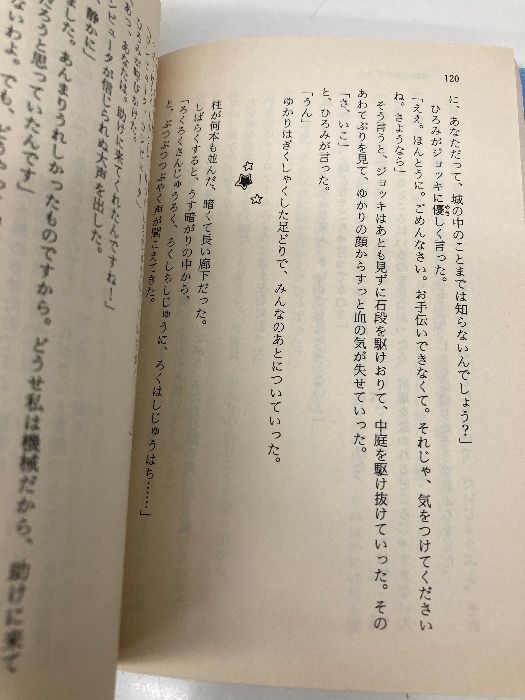 120
に、あなただって、城の中のことまでは知らないんでしょう?」
ひろみがジョッキに優しく言った。
「ええ。ほんとうに。ごめんなさい。お手伝いできなくて。それじゃ、気をつけてください
ね。さようなら」
そう言うと、ジョッキはあとも見ずに石段を駆けおりて、中庭を駆け抜けていった。その
あわてぶりを見て、ゆかりの顔からすっと血の気が失せていった。
「さ、いこ」
と、ひろみが言った。
「うん」
ゆかりはぎくしゃくした足どりで、みんなのあとについていった。
柱が何本も並んだ、暗くて長い廊下だった。
しばらくすると、うす暗がりの中から、
「ろくろくさんじゅうろく、ろくしちしじゅうに、ろくはしじゅうはち……」
と、ぶつぶつつぶやく声が聞こえてきた。
ひろみが呼びかけた。
あなたは。助けに来てくれたんですね!」
ンピュータが信じられぬ大声を出した。
静かに」
ました。あんまりうれしかったものですから。どうせ私は機械だから、助けに来て
だろうと思っていたんです」
ないわよ。でも、